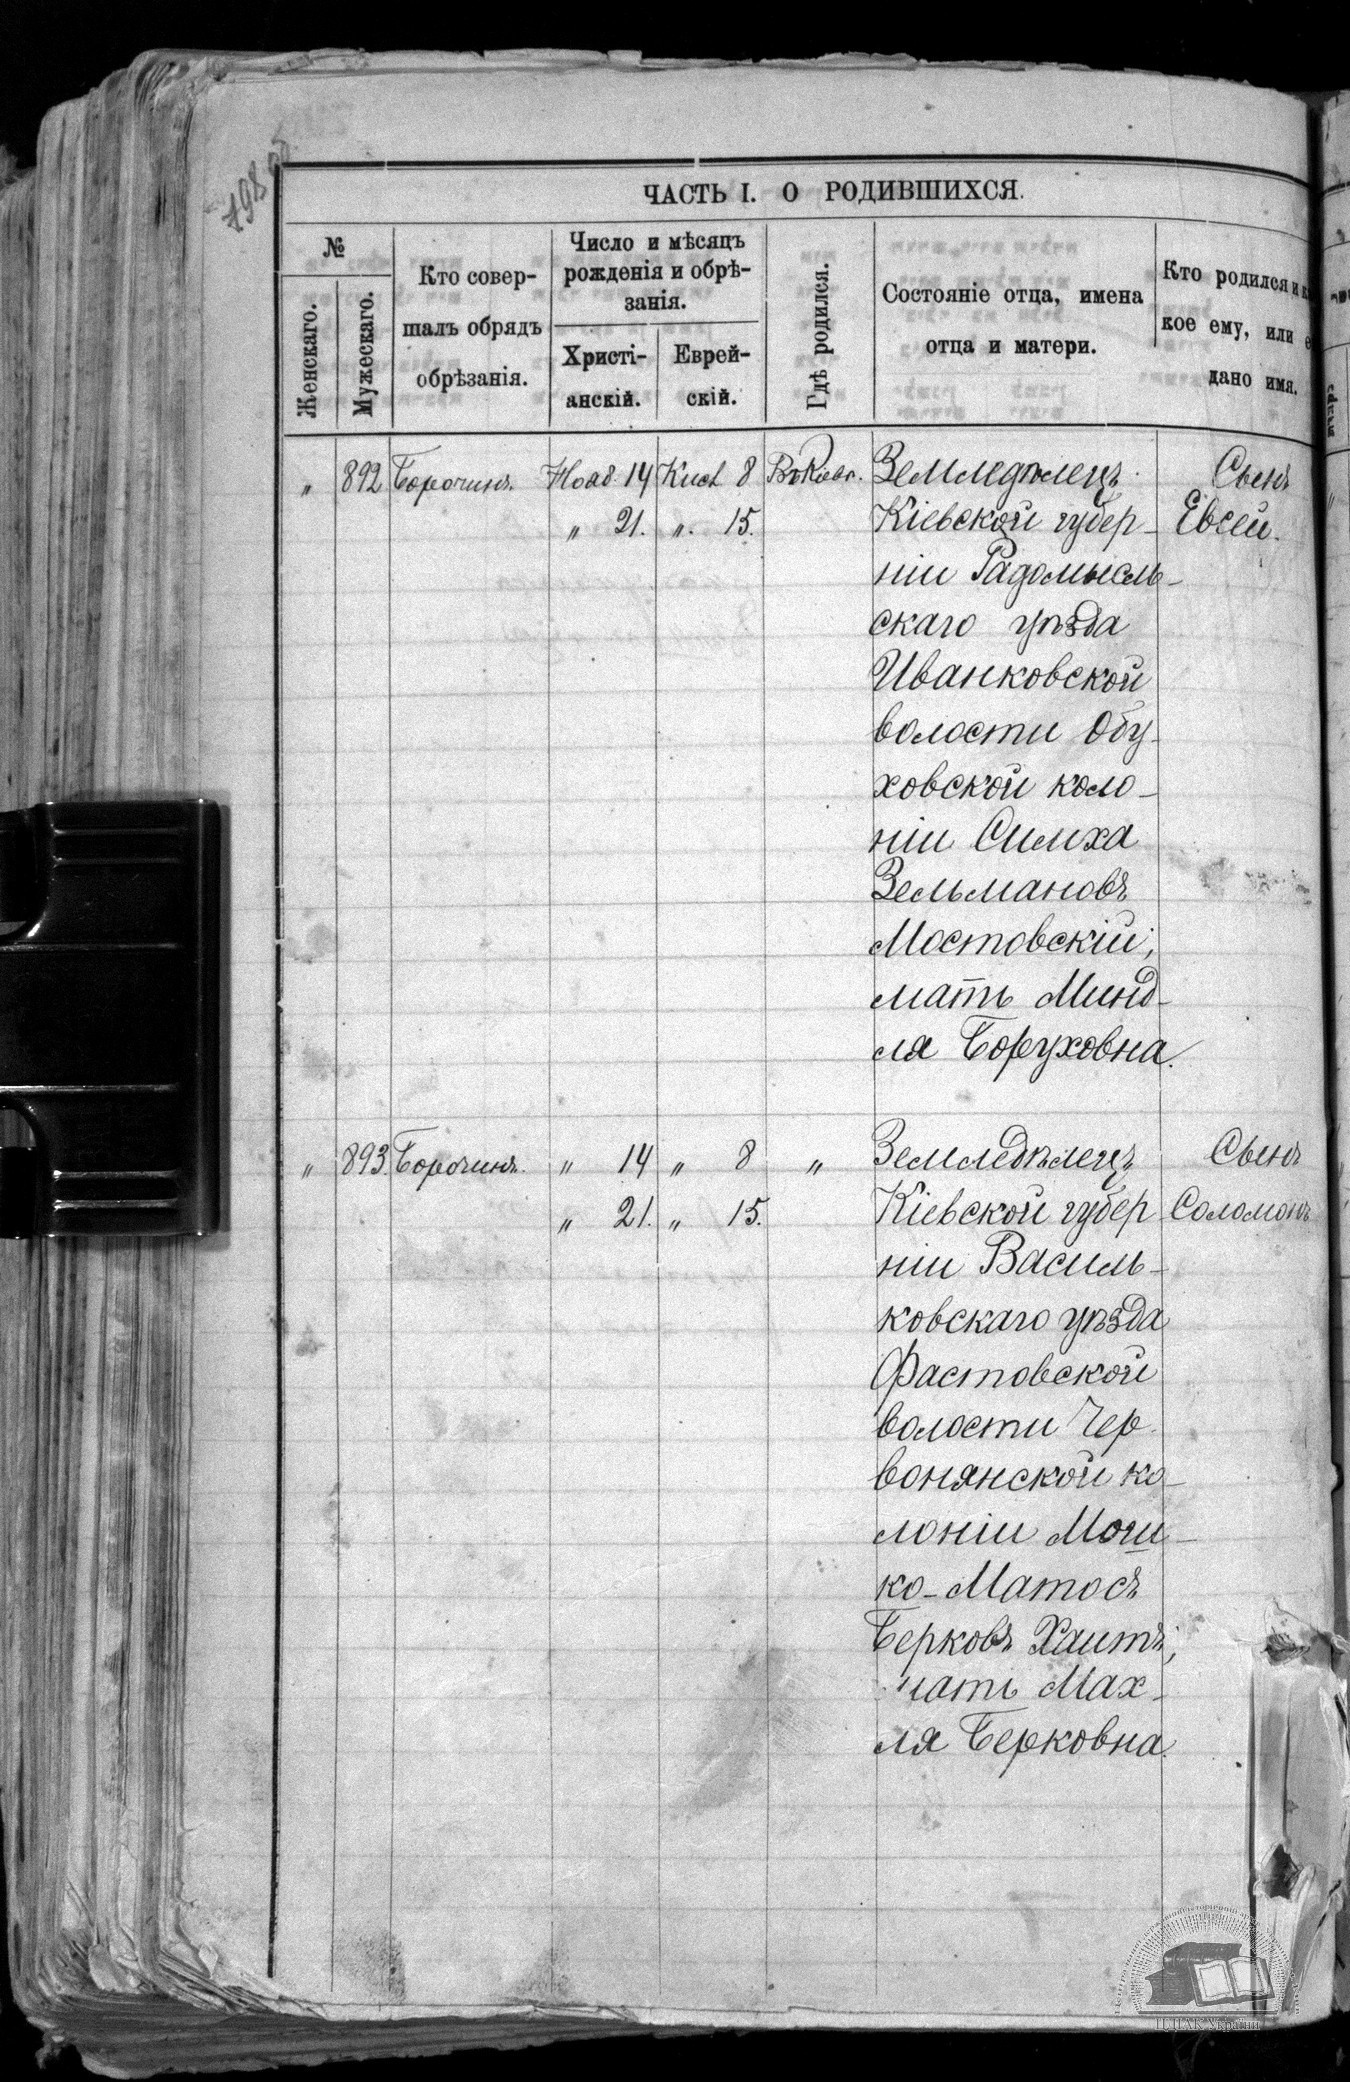 498 об.
ЧАСТЬ I. О РОДИВШИХСЯ.
№
Женскаго.
Мужескаго.
Кто совер-
шалъ обрядъ
обрѣзанія.
Число и мѣсяцъ
рожденія и обрѣ-
занія.
Христі-
анскій.
Еврей-
скій.
Гдѣ родился.
Состояніе отца, имена
отца и матери.
Кто родился и к
кое ему, или е
дано имя.
" 892 Борочинъ. Нояб. 14 Кисл 8 Въ Кіевѣ. Земледѣлецъ Сынъ
" 21. ". 15. Кіевской губер- Евсей.
ніи Радомысль-
скаго уѣзда
Иванковской
волости Обу-
ховской коло-
ніи Симха
Зельмановъ
Мостовскій;
мать Минд-
ля Боруховна.
" 893. Борочинъ. " 14 " 8 " Земледѣлецъ Сынъ
" 21. " 15. Кіевской губер Соломонъ
ніи Василь-
ковскаго уѣзда
Фастовской
волости Чер-
вонянской ко-
лоніи Мош-
ко-Матосъ
Берковъ Хаитъ;
мать Мах-
ля Берковна.
ЦДІАК України